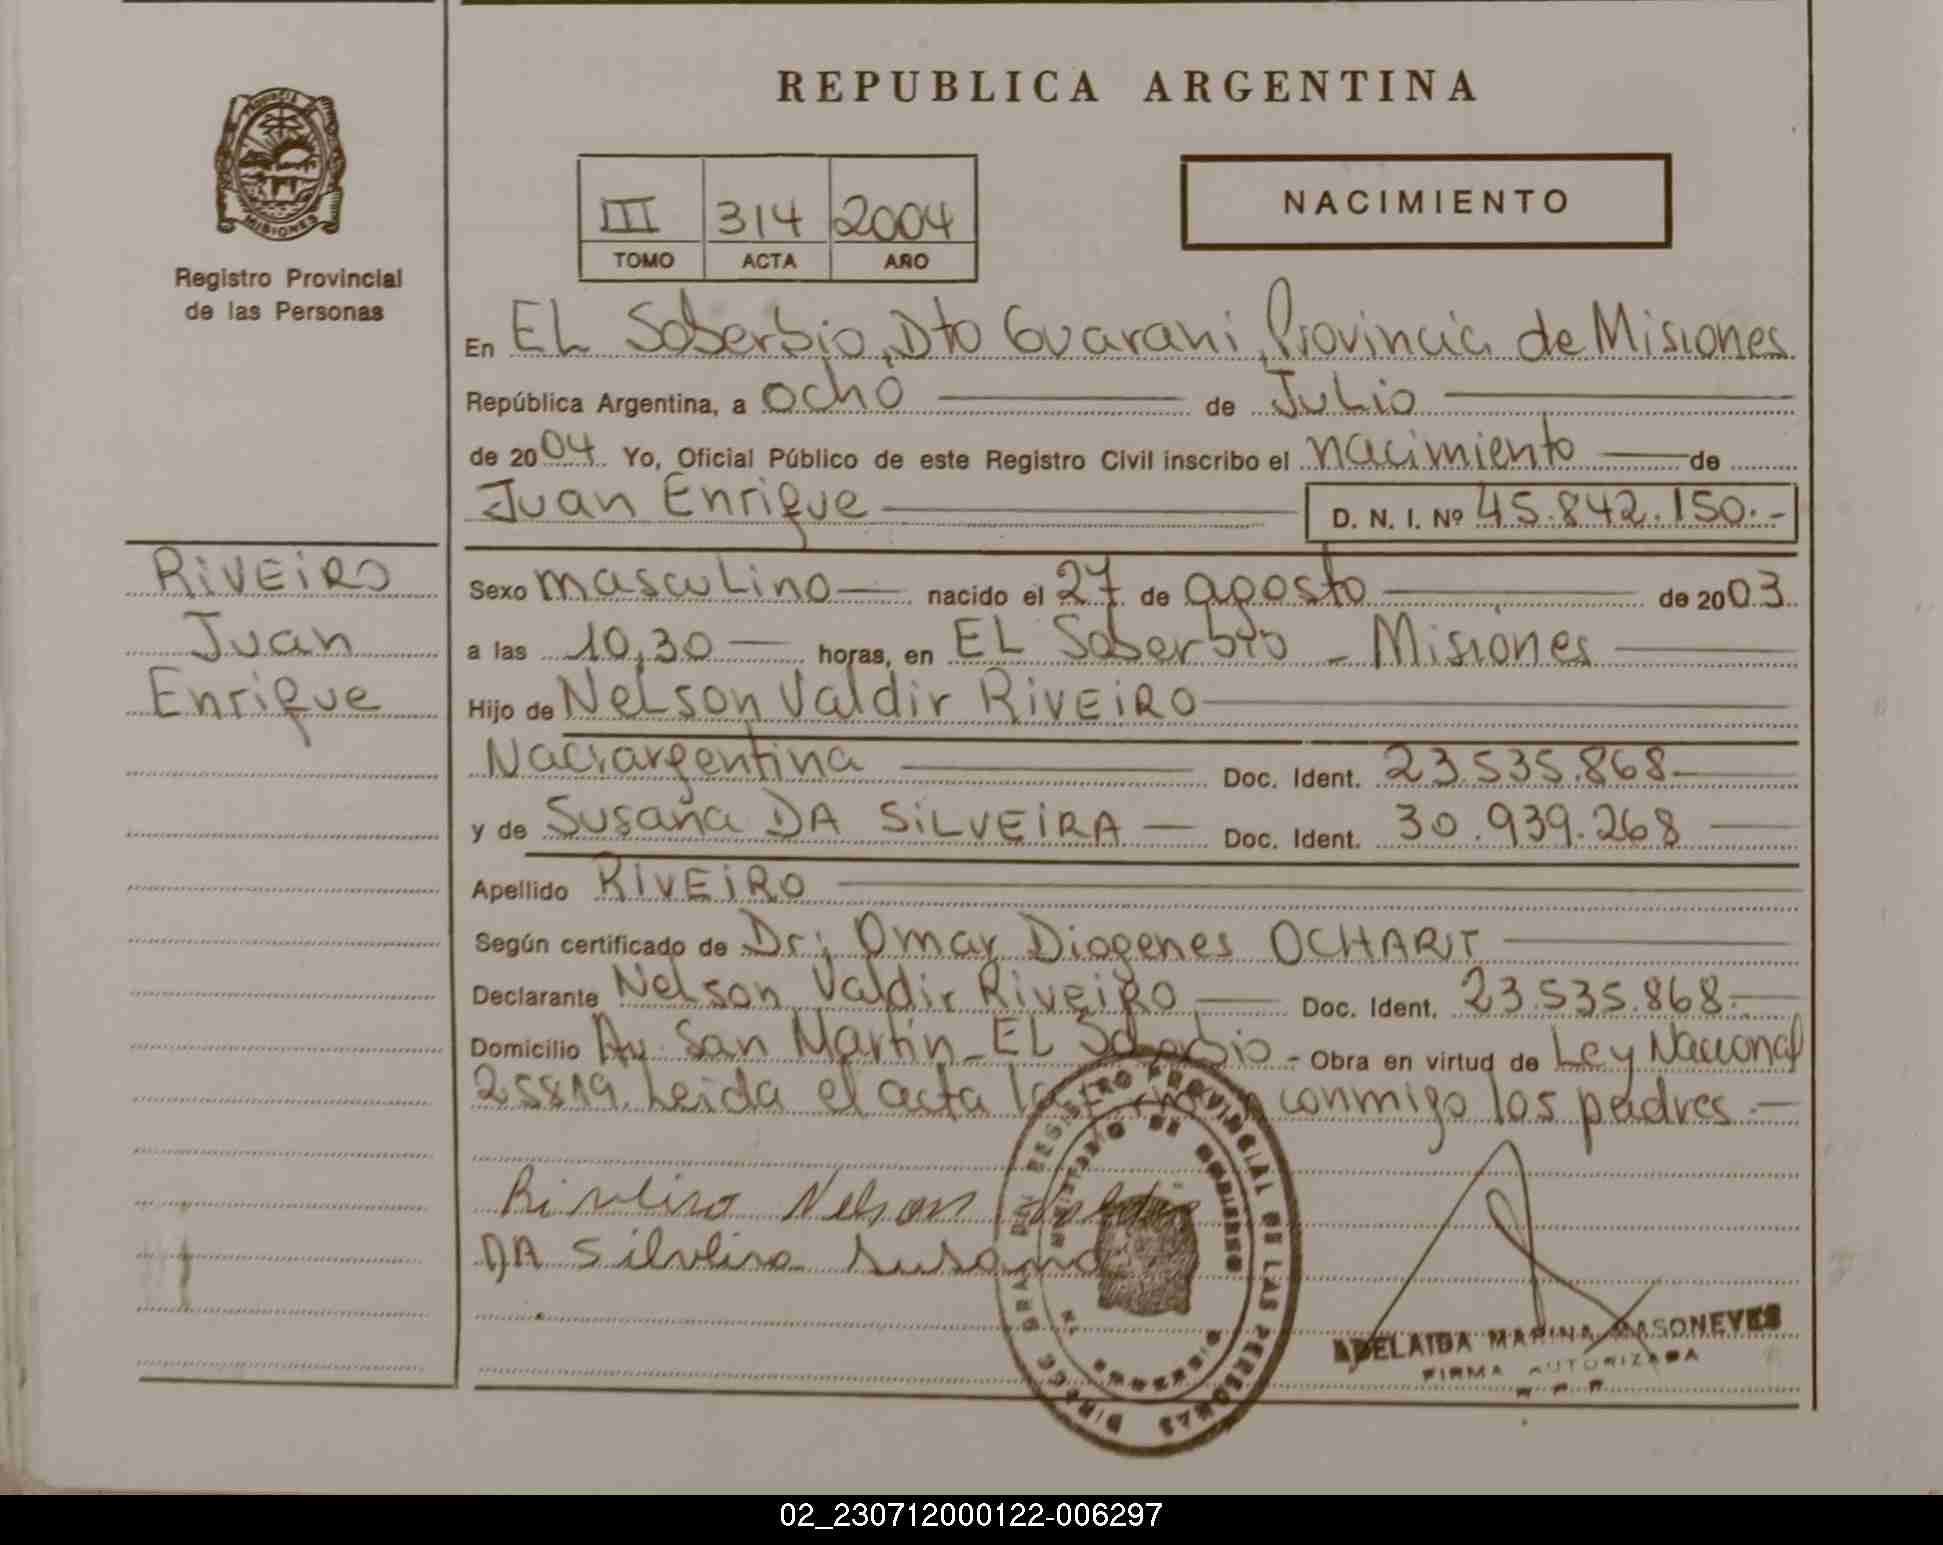 REPUBLICA ARGENTINA
MISIONES
Registro Provincial
de las Personas
III 314 2004
TOMO ACTA AÑO
NACIMIENTO
En EL Soberbio, Dto Guarani, Provincia de Misiones
República Argentina, a ocho de Julio
de 2004 Yo, Oficial Público de este Registro Civil inscribo el nacimiento de
Juan Enrique D. N. I. Nº 45.842.150.-
RIVEIRO
Juan
Enrique
Sexo masculino nacido el 27 de agosto de 2003
a las 10,30 horas, en EL Soberbio - Misiones
Hijo de Nelson Valdir RIVEIRO
Nac. argentina Doc. Ident. 23.535.868
y de Susana DA SILVEIRA Doc. Ident. 30.939.268
Apellido RIVEIRO
Según certificado de Dr; Omar Diogenes OCHARIT
Declarante Nelson Valdir Riveiro Doc. Ident. 23.535.868.
Domicilio Av. San Martín - EL Soberbio - Obra en virtud de Ley Nacional
25819. Leida el acta la conmigo los padres.-
Riveiro Nelson Valdir
DA Silveira Susana
REGISTRO PROVINCIAL DE LAS PERSONAS
MINISTERIO DE GOBIERNO
MISIONES
ADELAIDA MARINA MASONEVES
FIRMA AUTORIZADA
02_230712000122-006297